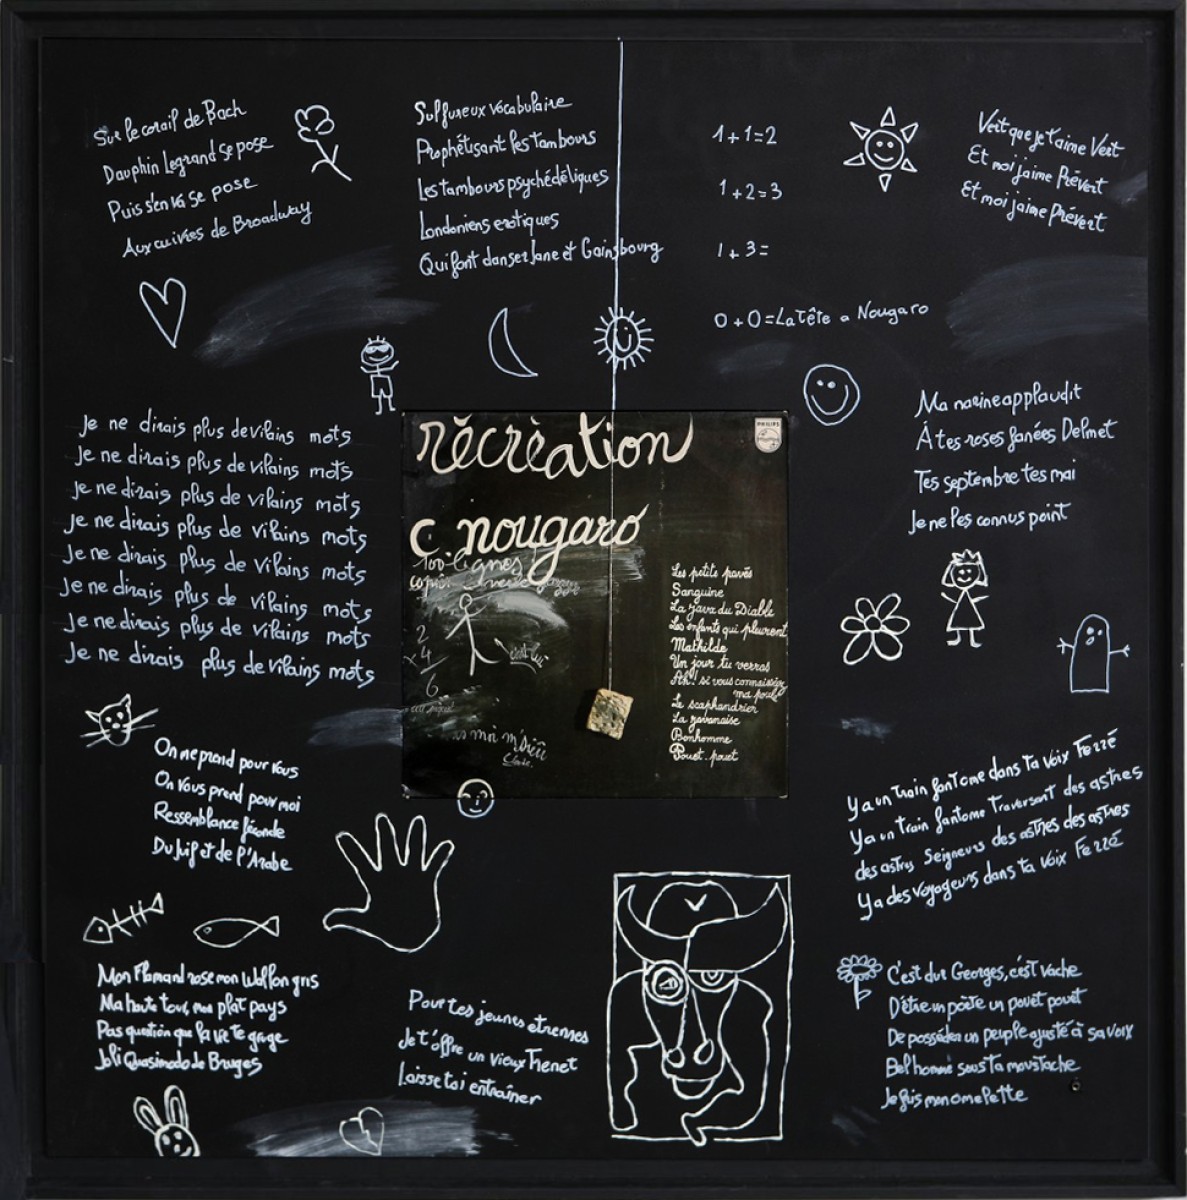 Sur le corail de Bach
Dauphin Legrand se pose
Puis s'en va se pose
Aux cuivres de Broadway
Sulfureux vocabulaire
Prophétisant les tambours
Les tambours psychédéliques
Londoniens erotiques
Qui font danser Jane et Gainsbourg
1+1=2
1+2=3
1+3=
0+0=La tête a Nougaro
Vert que je t'aime Vert
Et moi j'aime Prévert
Et moi j'aime Prévert
Je ne dirais plus de vilains mots
Je ne dirais plus de vilains mots
Je ne dirais plus de vilains mots
Je ne dirais plus de vilains mots
Je ne dirais plus de vilains mots
Je ne dirais plus de vilains mots
Je ne dirais plus de vilains mots
Je ne dirais plus de vilains mots
récréation
PHILIPS
c. nougaro
100 lignes
copier
2
x4
6
c'est lui
moi m'sieu
Claude.
Les petits pavés
Sanguine
La java du Diable
Les enfants qui pleurent
Mathilde
Un jour tu verras
Ah! si vous connaissiez
ma poule
Le scaphandrier
La javanaise
Bonhomme
Pouet-pouet
Ma narine applaudit
À tes roses fanées Delmet
Tes septembre tes mai
Je ne les connus point
On me prend pour vous
On vous prend pour moi
Ressemblance féconde
Du Juif et de l'Arabe
Mon Flamand rose mon Wallon gris
Ma haute tour, mon plat pays
Pas question que la vie te gruge
Joli Quasimodo de Bruges
Pour tes jeunes etrennes
Je t'offre un vieux Trenet
Laisse toi entraîner
Y a un train fantome dans ta voix Ferré
Y a un train fantome traversant des astres
des astres Seigneurs des astres des astres
Y a des voyageurs dans ta voix Ferré
C'est dur Georges, c'est vache
D'être un poète un pouët pouët
De posséder un peuple ajusté à sa voix
Bel homme sous ta moustache
Je fuis mon omelette